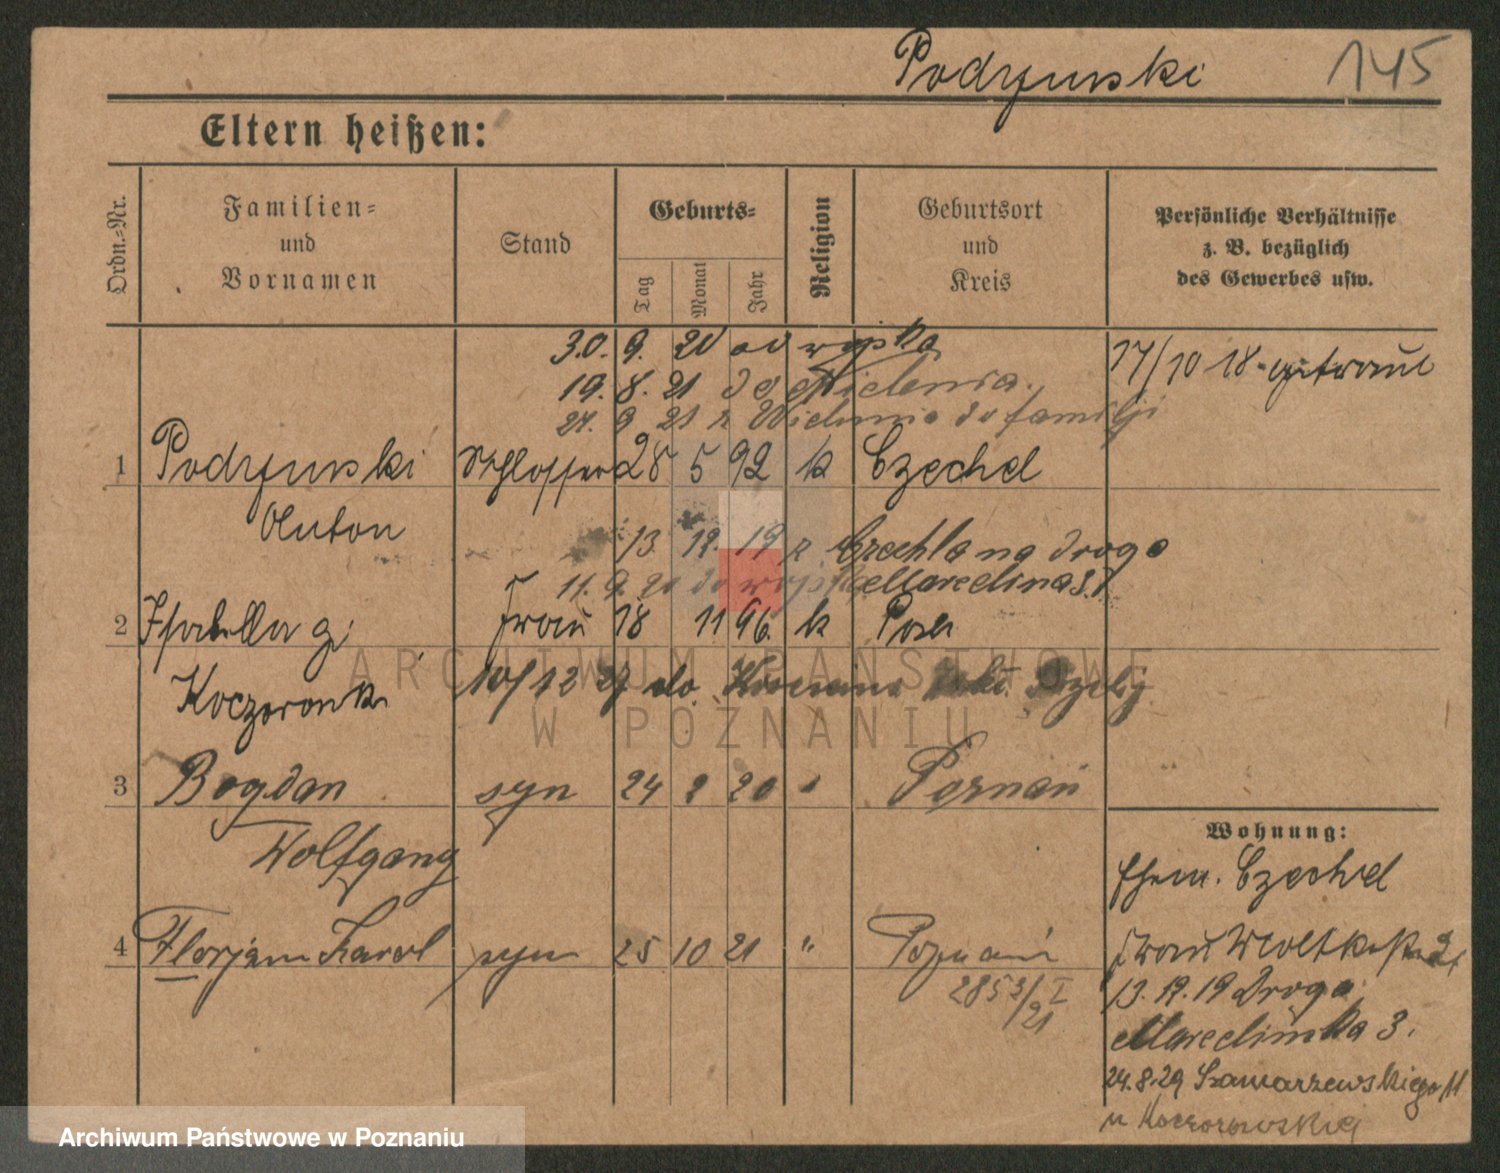 Podrzunski 145
Eltern heißen:
Ordn.-Nr.
Familien- und Vornamen
Stand
Geburts-
Tag Monat Jahr
Religion
Geburtsort und Kreis
Persönliche Verhältnisse z. B. bezüglich des Gewerbes usw.
30. 9. 20 od wojska
17/10 18 getraut
19. 8. 21 do Wielenia.
27. 9 21 z Wielenia do familji
1 Podrzunski Schlosser 28 5 92 k Czechel
Anton
13. 12. 19 z Czechla na droga
11. 9. 20 do wojska Marcelina 3.
2 Isabella g. Frau 18 11 96. k Posen
10/12 27 do
3 Bogdan syn 24 2 20 " Poznań
Wolfgang
4 Florjan Karol syn 25 10 21 " Poznań
2853/21 I
Wohnung:
Ehem. Czechel
Frau
13. 12. 19 Droga
Marcelinska 3.
24.8.29 Szamarzewskiego 11
u Koczorowskiej
ARCHIWUM PAŃSTWOWE
W POZNANIU
Archiwum Państwowe w Poznaniu